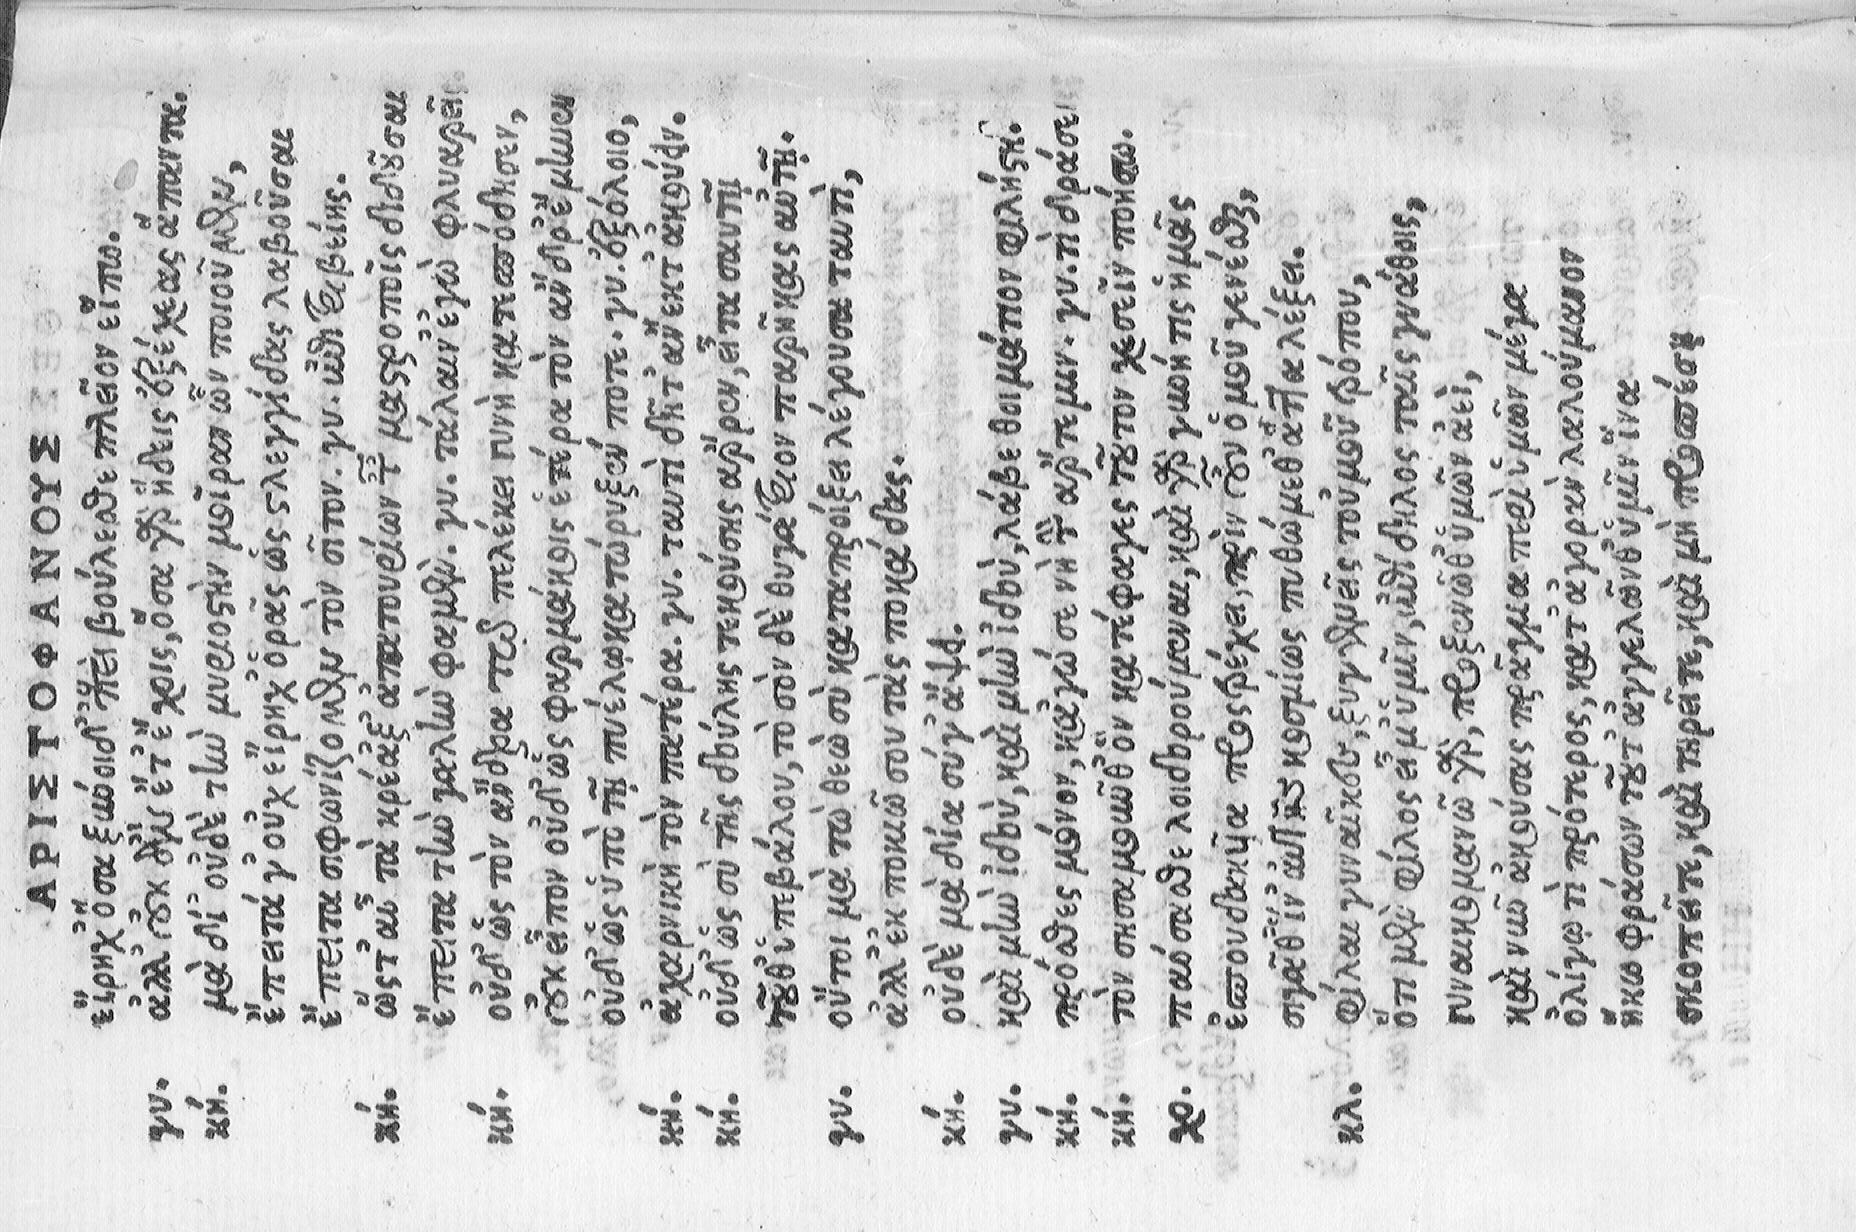 ΑΡΙΣΤΟΦΑΝΟΥΣ
εἴρηχ᾽ ὅσα ξύνοιδ᾽ ἐπεὶ βούλεσθε πλεῖον εἴπω.
γυ. ἀλλ᾽ οὐκ ἂν ἔτ᾽ ἔχοις, ὅσα γὰρ ᾔδεις ἐξέχεας ἅπαντα.
κή. μὰ δί᾽ οὐδὲ τὴν μυριοστὴν μοῖραν ὧν ποιοῦμεν,
ἔπειτά γ᾽ οὐχ εἴρηχ᾽ ὁρᾷς ὡς στλεγγίδας λαβοῦσαι
ἔπειτα σιφωνίζομεν τὸν σῖτον. γυ. ἐπιτριβείης.
κή. ὥς τ᾽ αὖ τὰ κρέα ἐξ ἀπατουρίων ταῖς μαστροποῖς διδοῦσαι
ἔπειτα τὴν γαλὴν φαμὲν. γυ. τάλαιν᾽ ἐγὼ φλυαρεῖς.
κή. οὐδ᾽ ὡς τὸν ἄνδρα τῷ πελέκει γυνὴ κατεσπόδησεν,
οὐκ εἶπον οὐδ᾽ ὡς φαρμάκοις ἑτέρα τὸν ἄνδρ᾽ ἔμηνεν
οὐδ᾽ ὡς ὑπὸ τῇ πυέλῳ κατώρυξέν ποτε. γυ. ἐξόλοιο,
κή. ἀχαρνικὴ τὸν πατέρα. γυ. ταυτὶ δῆτ᾽ ἀνεκτ᾽ ἀκούειν.
κή. οὐδ᾽ ὡς σὺ τῆς δούλης τεκούσης ἄρρεν, εἶτα σαυτῇ
τοῦθ᾽ ὑπεβάλου, τὸ σὸν δὲ θυγάτριον παρῆκας αὐτῇ.
γυ. οὔτοι μὰ τὼ θεὼ σὺ καταπροίξει λέγουσα ταυτὶ,
ἀλλ᾽ ἐκποκιῶ σου τὰς ποκάδας.
κή. οὐδὲ μὰ δία σύ γ᾽ ἅψει.
γυ. καὶ μὴν ἰδοὺ, καὶ μὴν ἰδοὺ, λάβε θοιμάτιον
κή. πρόσθες μόνον, κἀγώ σε νὴ τὴν ἄρτεμιν. γυ. τί δράσεις
κή. τὸν σησαμοῦνθ᾽ ὃν κατέφαγες τοῦτον χεσεῖν ποιήσω.
χο. παύσασθε λοιδορούμεναι, καὶ γὰρ γυνή τις ἡμᾶς
ἐσπουδακυῖα προστρέχει, πρὶν οὖν ὁμοῦ γενέσθαι,
σιγᾶθ᾽ ἵν᾽ αὐτῆς κοσμίως πυθώμεθ᾽ ἅττα λέξει.
κλ. φίλαι γυναῖκες, ξυγγενεῖς τοὐμοῦ τρόπου,
ὅτι μὲν φίλος εἴμ᾽ ὑμῖν, ἐπίδηλος ταῖς γνάθοις,
γυναικομανῶ γὰρ, προξενῶθ᾽ ὑμῶν ἀεὶ,
καὶ νῦν ἀκούσας πρᾶγμα περὶ ὑμῶν μέγα
ὀλίγῳ τι πρότερος, κατ᾽ ἀγορὰν λαλούμενον
ἥκω φράσων τοῦτ᾽ ἀγγελῶνθ᾽ ὑμῖν ἵνα
σκοπεῖτε, καὶ τηρεῖτε, καὶ μὴ προσπέσῃ